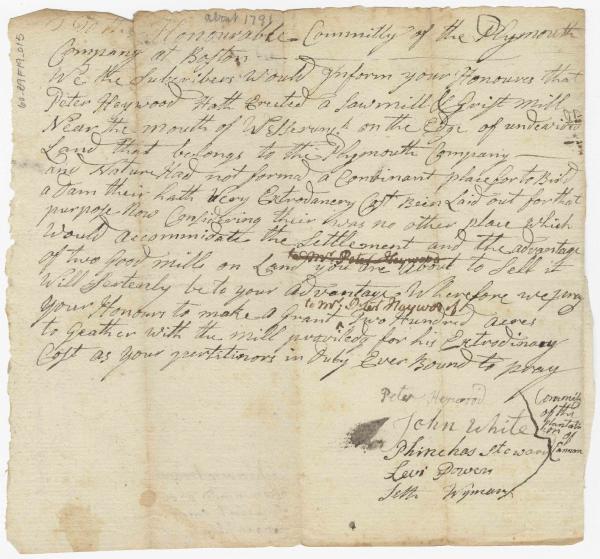 about 1791
60-09F19.015
To the Honourable Committy of the Plymouth
Company at Boston
We the Subcribers Would Inform your Honours that
Peter Heywood Hath Erected a Sawmill & Grist Mill
Near the mouth of on the Edge of undevised
Land that belongs to the Plymouth Company
and Nature Had not formed a Conbinant place for to Bild
a dam their hath Very Extrodanery Cost Been Laid out for that
purpose Now Considering their was no other place which
Would accommidate the Settlement and the advantage
to Mr. Peter Heywood
of two good mills on Land you are about to Sell it
Will Sertenly be to your advantage Wherefore we pray
to Mr. Peter Haywood
your Honours to make a grant Two Hundred acres
to geather with the mill for his Extrodinary
Cost as your petitinors in Duty Ever Bound to pray
Peter Heywood
John White
Phinehas Steward
Levi Powers
Seth Wyman
Committy
of the
plantati
on of
Canaan